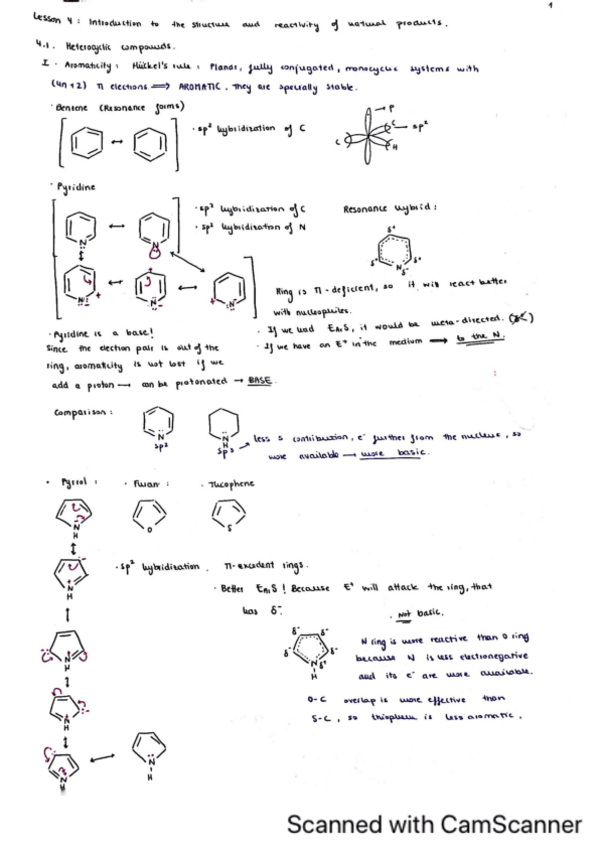 1
Lesson 4: Introduction to the structure and reactivity of natural products.
4.1. Heterocyclic compounds.
I - Aromaticity: Hückel's rule: Planar, fully conjugated, monocyclic systems with
(4n+2) π electrons ⟹ AROMATIC. They are specially stable.
· Benzene (Resonance forms)
· sp² hybridization of C
P
C
sp²
C
H
· Pyridine
· sp² hybridization of C
· sp² hybridization of N
Resonance hybrid:
Ring is π-deficient, so it will react better
with nucleophiles.
· Pyridine is a base!
Since the electron pair is out of the
ring, aromaticity is not lost if we
add a proton → can be protonated → BASE.
· If we had EArS, it would be meta-directed.
· If we have an E⁺ in the medium → to the N.
Comparison:
N
sp²
N
H
sp³
less s contribution, e⁻ further from the nucleus, so
more available → more basic.
· Pyrrol:
· Furan:
· Thiophene
N
H
O
S
· sp² hybridization. π-excedent rings.
· Better EArS! Because E⁺ will attack the ring, that
has δ⁻.
· Not basic.
N ring is more reactive than O ring
because N is less electronegative
and its e⁻ are more available.
O-C overlap is more effective than
S-C, so thiophene is less aromatic.
Scanned with CamScanner